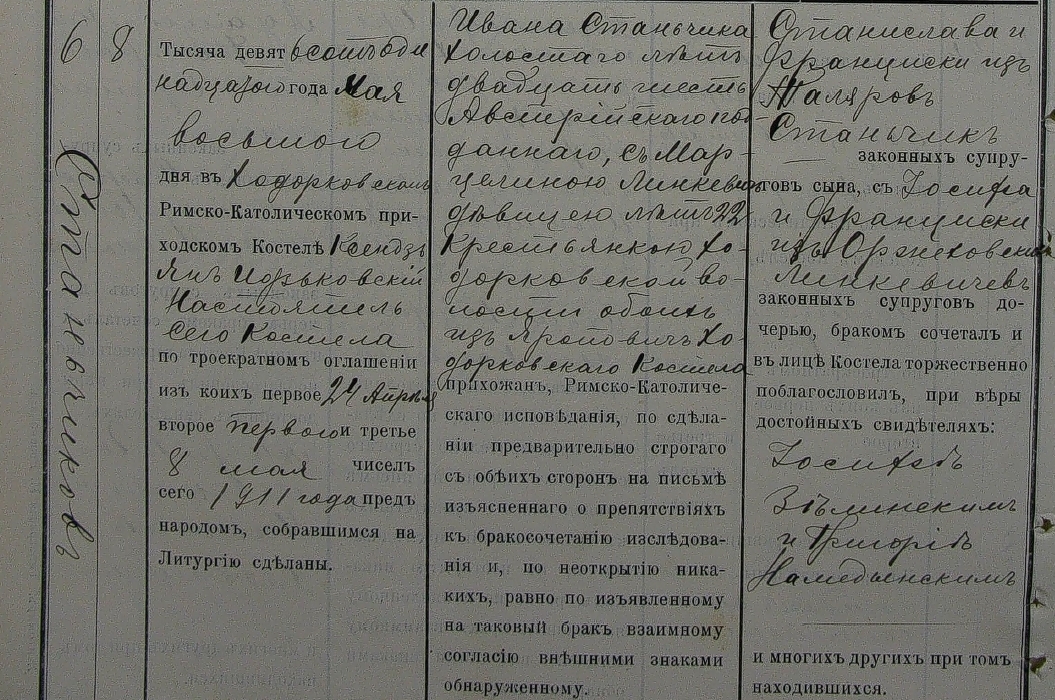 6
8
Станьчиковъ
Тысяча девят ьсотъ оди
надцатого года Мая
восьмого
дня въ Ходорковском
Римско-Католическомъ при-
ходскомъ Костелѣ Ксендзъ
Янъ
Настоятель
сего Костела
по троекратномъ оглашеніи
изъ коихъ первое 24 Апрѣля
второе перваго и третье
8 мая чиселъ
сего 1911 года предъ
народомъ, собравшимся на
Литургію сдѣланы.
Ивана Станьчика
холостаго лѣтъ
двадцать шесть
Австрійскаго под-
даннаго, съ Мар-
целиною Линкевичъ
дѣвицею лѣтъ 22
Крестьянкою Хо-
дорковской во-
лости обоихъ
изъ Яроповичъ Хо-
дорковскаго Костела
прихожанъ, Римско-Католиче-
скаго исповѣданія, по сдѣла-
ніи предварительно строгаго
съ обѣихъ сторонъ на письмѣ
изъясненнаго о препятствіяхъ
къ бракосочетанію изслѣдова-
нія и, по неоткрытію ника-
кихъ, равно по изъявленному
на таковый бракъ взаимному
согласію внѣшними знаками
обнаруженному.
Станислава и
Франциски изъ
Маляровъ
Станьчикъ
законныхъ супру-
говъ сына, съ Іосифа
и Франциски
изъ Оржеховскихъ
Линкевичевъ
законныхъ супруговъ до-
черью, бракомъ сочеталъ и
въ лицѣ Костела торжественно
поблагословилъ, при вѣры
достойныхъ свидѣтеляхъ:
Іосифѣ
Зѣлинскимъ
и Григоріѣ
и многихъ другихъ при томъ
находившихся.